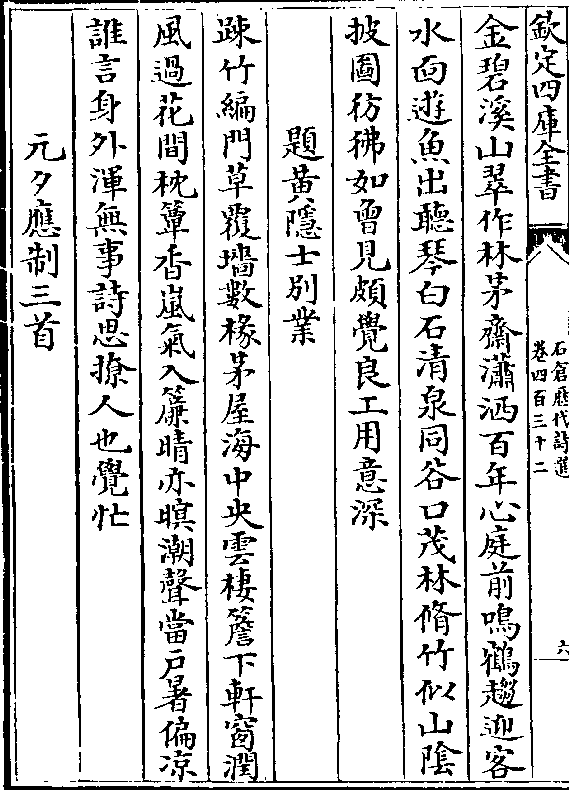 欽定四庫全書
石倉歷代詩選
卷四百三十二
六
金碧溪山翠作林茅齋瀟洒百年心庭前鳴鶴趨迎客
水面遊魚出聽琴白石清泉同谷口茂林脩竹似山陰
披圖彷彿如曾見頗覺良工用意深
題黄隱士別業
踈竹編門草覆墻數椽茅屋海中央雲棲簷下軒窗潤
風過花間枕簟香嵐氣入簾晴亦暝潮聲當戶暑偏凉
誰言身外渾無事詩思撩人也覺忙
元夕應制三首